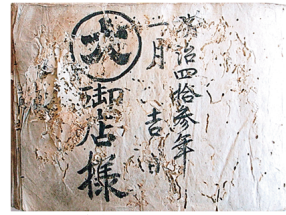 明治四拾参年
一月 吉日
火
御店様